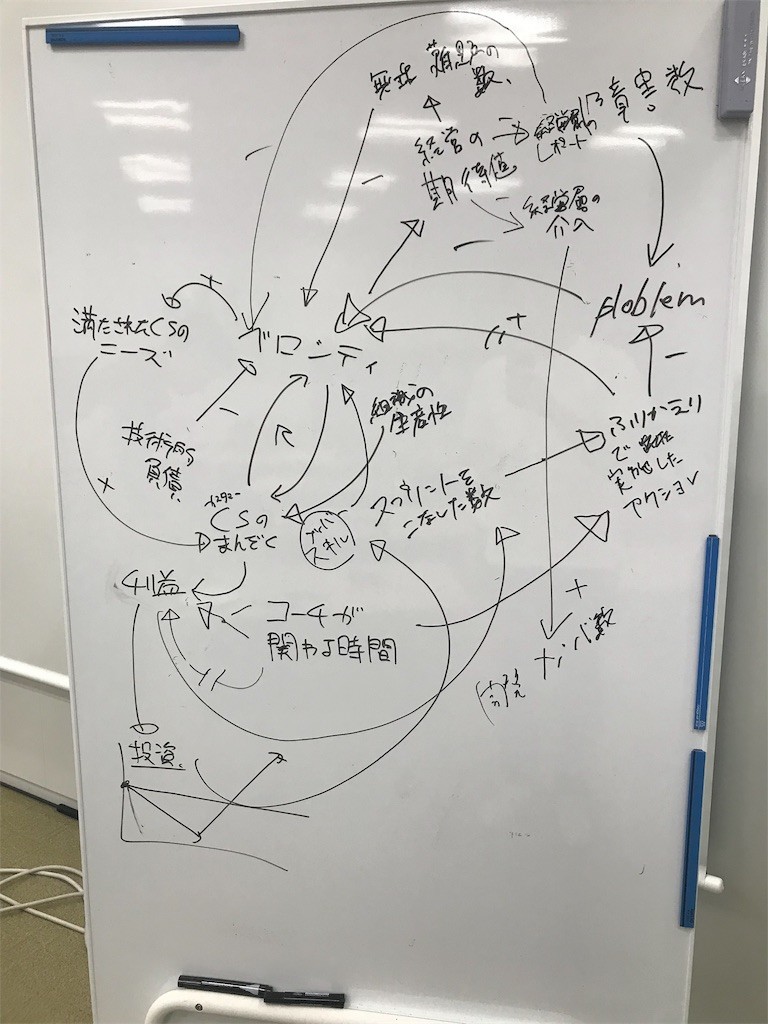 難題の
数、
障害数
経営の
期待値
経営層の
レポート
経営層の
介入
problem
満たされたCSの
ニーズ
ベロシティ
技術的
負債、
組織の
生産性
ふりかえり
で
実施した
アクション
スプリントを
こなした数
CSの
まんぞく
スキル
利益
コーチが
関わる時間
投資、
メンバ数
+
+
+
+
-
-
-
-
-
-